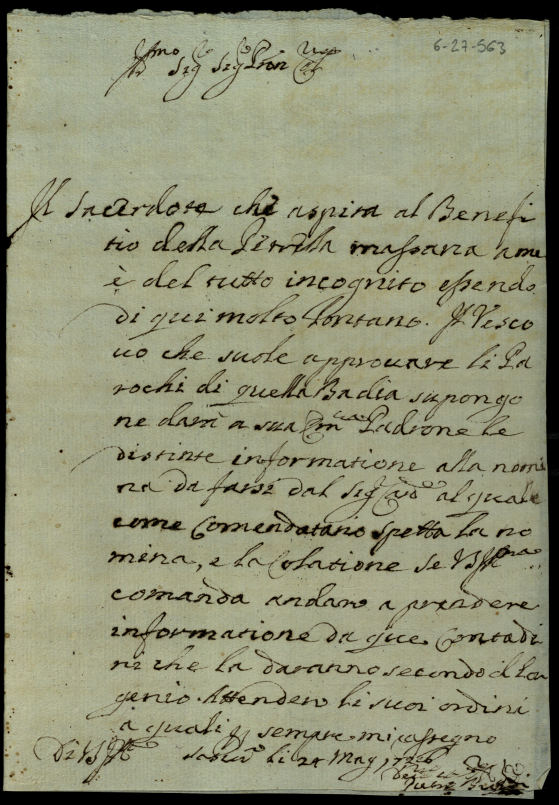 6-27-563
Jll.mo Sig.e Sig.e Pron
Il Sacerdote che aspira al Benefi
tio della Petrella massana a me
è del tutto incognito essendo
di qui molto lontano. Il Vesco
uo che suole approuare li Pa
rochi di quella Badia supongo
ne darà a sua Em Padrone le
distinte informatione alla nomi
na da farsi dal Sig Card al quale
come Comendatario spetta la no
mina, e la Colatione se VS Jll.ma
comanda andarò a prendere
informatione da que Contadi
ni che la daranno secondo il lor
genio. Attenderò li suoi ordini
a quali p sempre mi rassegno
Di VS Jll.ma
li 24 Mag